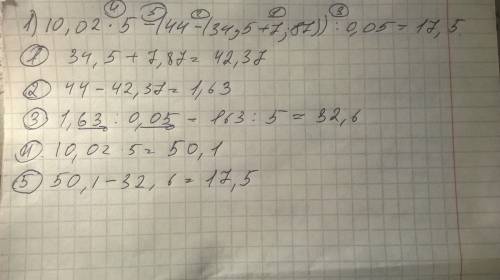 ④ ⑤ ② ① ③
1) 10,02 · 5 - (44 - (34,5 + 7,87)) : 0,05 = 17,5
① 34,5 + 7,87 = 42,37
② 44 - 42,37 = 1,63
③ 1,63 : 0,05 - 163 : 5 = 32,6
④ 10,02 · 5 = 50,1
⑤ 50,1 - 32,6 = 17,5